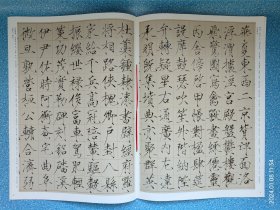 夏東西二京背芒面洛
浮渭據涇宮殿盤鬱樓觀
飛驚圖寫禽獸畫綵仙靈
丙舍傍啓甲帳對楹肆筵
設席鼓瑟吹笙升階納陛
弁轉疑星右通廣內左達
承明既集墳典亦聚群英
杜稾鍾隸漆書壁經府羅
將相路俠槐卿戶封八縣
家給千兵高冠陪輦驅轂
振纓世祿侈富車駕肥輕
策功茂實勒碑刻銘磻溪
伊尹佐時阿衡奄宅曲阜
微旦孰營桓公輔合濟弱